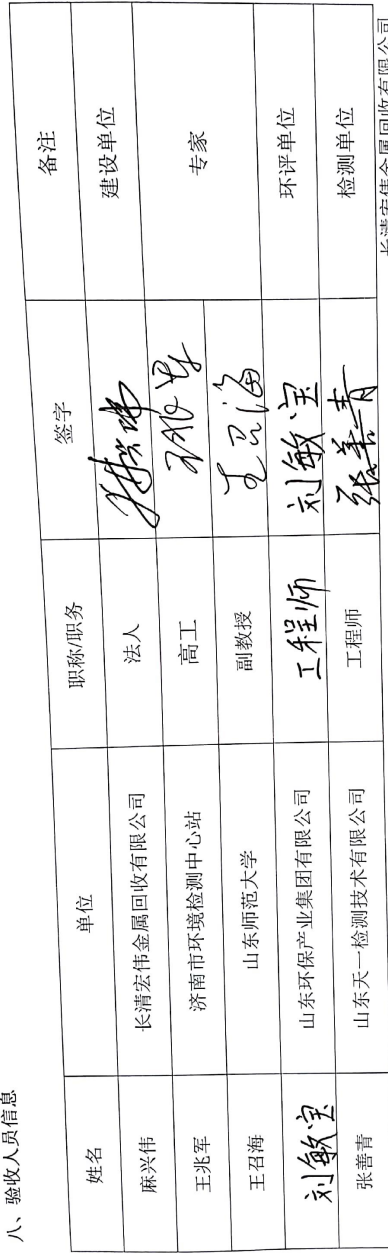 八、验收人员信息
姓名 单位 职称/职务 签字 备注
麻兴伟 长清宏伟金属回收有限公司 法人 麻兴伟 建设单位
王兆军 济南市环境检测中心站 高工 王兆军 专家
王召海 山东师范大学 副教授 王召海
刘敏宝 山东环保产业集团有限公司 工程师 刘敏宝 环评单位
张善青 山东天一检测技术有限公司 工程师 张善青 检测单位
长清宏伟金属回收有限公司